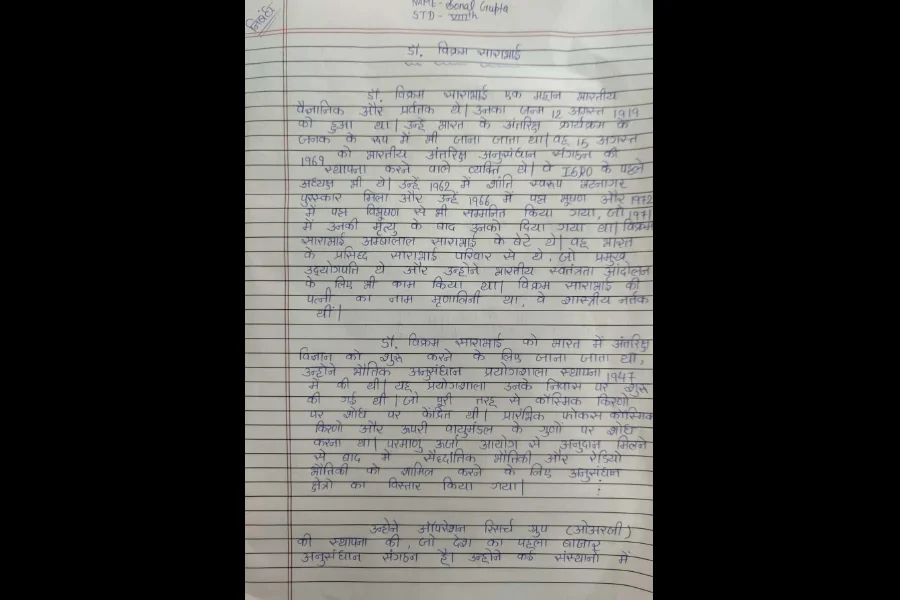 NAME- Sonal Gupta
STD - VIIIth
निबंध
डॉ. विक्रम साराभाई
डॉ. विक्रम साराभाई एक महान भारतीय
वैज्ञानिक और प्रर्वतक थे। उनका जन्म 12 अगस्त 1919
को हुआ था। उन्हें भारत के अंतरिक्ष कार्यक्रम के
जनक के रूप में भी जाना जाता था। वह 15 अगस्त
1969 को भारतीय अंतरिक्ष अनुसंधान संगठन की
स्थापना करने वाले व्यक्ति थे। वे ISRO के पहले
अध्यक्ष भी थे। उन्हें 1962 में शांति स्वरूप भटनागर
पुरस्कार मिला और उन्हें 1966 में पद्म भूषण और 1972
में पद्म विभूषण से भी सम्मानित किया गया, जो 1971
में उनकी मृत्यु के बाद उनको दिया गया था। विक्रम
साराभाई अम्बालाल साराभाई के बेटे थे। वह भारत
के प्रसिद्ध साराभाई परिवार से थे, जो प्रमुख
उद्योगपति थे और उन्होने भारतीय स्वतंत्रता आंदोलन
के लिए भी काम किया था। विक्रम साराभाई की
पत्नी का नाम मृणालिनी था, वे शास्त्रीय नर्तक
थीं।
डॉ. विक्रम साराभाई को भारत में अंतरिक्ष
विज्ञान को शुरू करने के लिए जाना जाता था,
उन्होने भौतिक अनुसंधान प्रयोगशाला स्थापना 1947
में की थी। यह प्रयोगशाला उनके निवास पर शुरू
की गई थी। जो पूरी तरह से कॉस्मिक किरणो
पर शोध पर केंद्रित थी। प्रारंभिक फोकस कॉस्मिक
किरणो और ऊपरी वायुमंडल के गुणों पर शोध
करना था। परमाणु ऊर्जा आयोग से अनुदान मिलने
से बाद में सैद्धांतिक भौतिकी और रेडियो
भौतिकी को शामिल करने के लिए अनुसंधान
क्षेत्रो का विस्तार किया गया।
उन्होने ऑपरेशन रिसर्च ग्रुप (ओआरजी)
की स्थापना की, जो देश का पहला बाजार
अनुसंधान संगठन है। उन्होने कई संस्थानो में